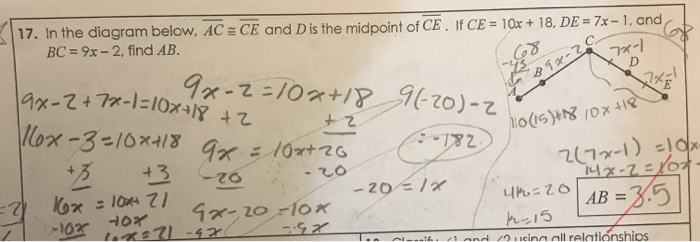 17. In the diagram below, AC ≅ CE and D is the midpoint of CE. If CE = 10x + 18, DE = 7x – 1, and
BC = 9x – 2, find AB.
68
68
-45
9x-2
C
7x-1
D
7x-1
E
B
A
10x+18
110(15)+18
9x-2=10x+18
+2
+2
9x = 10x+20
-20
-20
9x-20=10x
-9x
-9x
-20=1x
9(-20)-2
=-182
9x-2+7x-1=10x+18
16x-3=10x+18
+3
+3
16x = 10x+21
-10x
-10x
6x=21
2(7x-1)=10x
14x-2=10x
4x=20
x=15
AB = 3.5
using all relationships